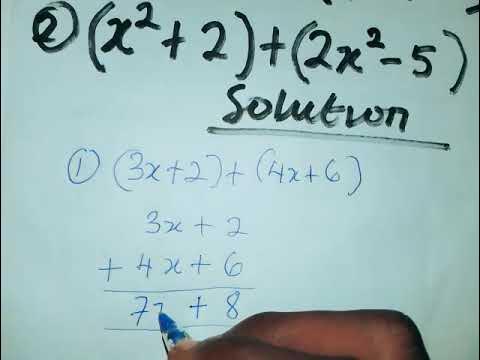 ② (x² + 2) + (2x² - 5)
Solution
① (3x + 2) + (4x + 6)
3x + 2
+ 4x + 6
7x + 8